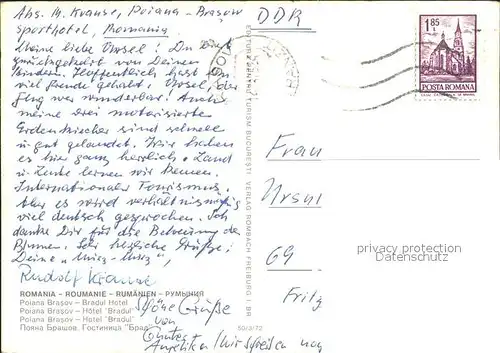 Abs. M. Krause, Poiana-Brașov
Sporthotel, Romania
DDR
Meine liebe Ursel! Du
zurückgekehrt von Deinen
Kindern. Hoffentlich hast Du
viel Freude gehabt. Ursel, der
Flug war wunderbar. Auch
meine drei motorisierte
sind schnell
u. gut gelandet. Wir haben
es hier ganz herrlich. Land
u. Leute lernen wir kennen.
Internationaler Tourismus.
Aber es wird verhältnismäßig
viel deutsch gesprochen. Ich
danke Dir für die Betreuung der
Blumen. Sehr herzliche Grüße!
Deine "Murz-Murz",
Rudolf Krause
ROMANIA – ROUMANIE – RUMÄNIEN – РУМЫНИЯ
Poiana Brașov – Bradul Hotel
Poiana Brașov – Hôtel "Bradul"
Poiana Brașov – Hotel "Bradul"
Пояна Брашов. Гостиница "Брад"
Schöne Grüße
von
Günter
Angelika /Wir speisen
50/3/72
EDITURA PENTRU TURISM BUCUREȘTI VERLAG ROMBACH FREIBURG I. BR
1,85 L
POSTA ROMANA
Frau
Ursul
69
Fritz
privacy protection
watermark